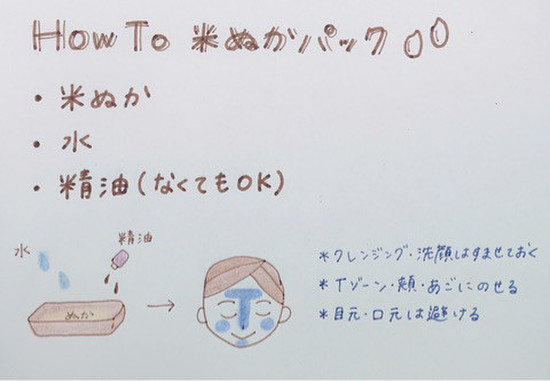 How To 米ぬかパック
・米ぬか
・水
・精油(なくてもOK)
水
精油
ぬか
*クレンジング・洗顔はすませておく
*Tゾーン・頬・あごにのせる
*目元・口元は避ける